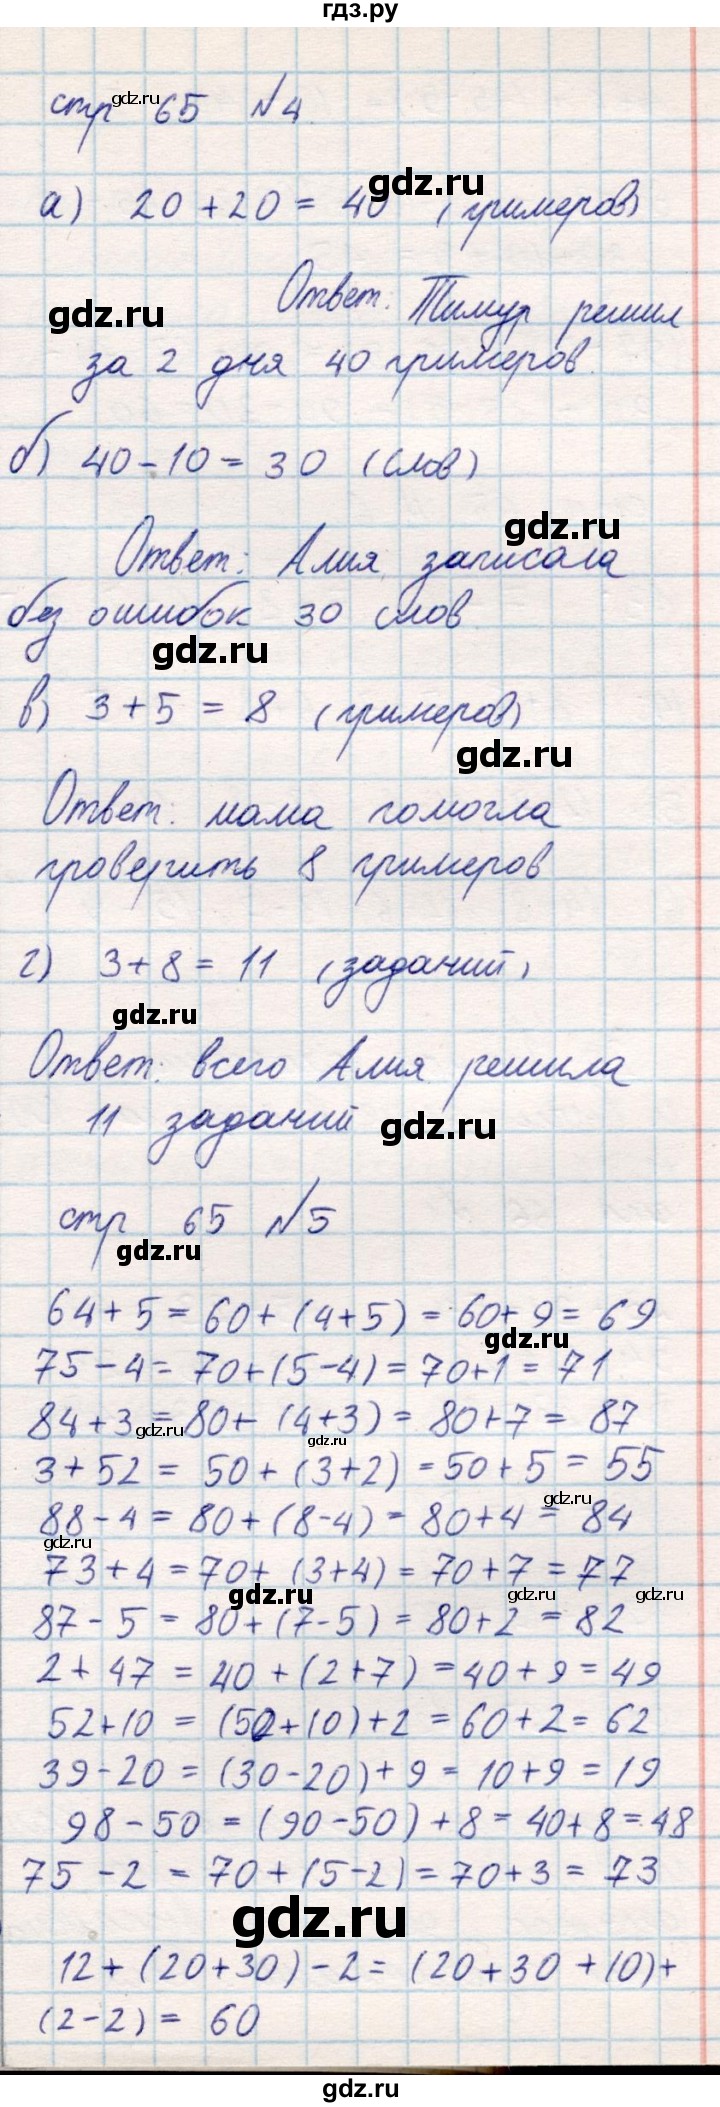 гдз.ру
стр 65 №4
gdz.ru
а) 20+20= 40 (примеров)
gdz.ru
Ответ: Тимур решил
gdz.ru
за 2 дня 40 примеров.
б) 40-10= 30 (слов)
gdz.ru
Ответ: Алия записала
без ошибок 30 слов
gdz.ru
в) 3+5 = 8 (примеров)
gdz.ru
Ответ: мама помогла
проверить 8 примеров
г) 3+8= 11 (заданий)
gdz.ru
Ответ: всего Алия решила
11 заданий
gdz.ru
стр 65 №5
gdz.ru
64+5 = 60+(4+5) = 60+9= 69
gdz.ru
75-4= 70+(5-4)=70+1=71
84+3=80+ (4+3) = 80+7= 87
gdz.ru
gdz.ru
3+52 = 50+(3+2) =50+5=55
gdz.ru
88-4=80+(8-4)=80+4=84
gdz.ru
73+4=70+ (3+4)=70+7=77
gdz.ru
gdz.ru
gdz.ru
87-5 = 80+(7-5)= 80+2 = 82
2+ 47 = 40 + (2+7) =40+9=49
52+10 = (50+10)+2 =60+2= 62
39-20 =(30-20)+9= 10+9=19
98-50 = (90-50) +8=40+8=48
75-2 = 70+(5-2)=70+3= 73
gdz.ru
12+(20+30)-2= (20+30+10)+
(2-2) = 60
gdz.ru